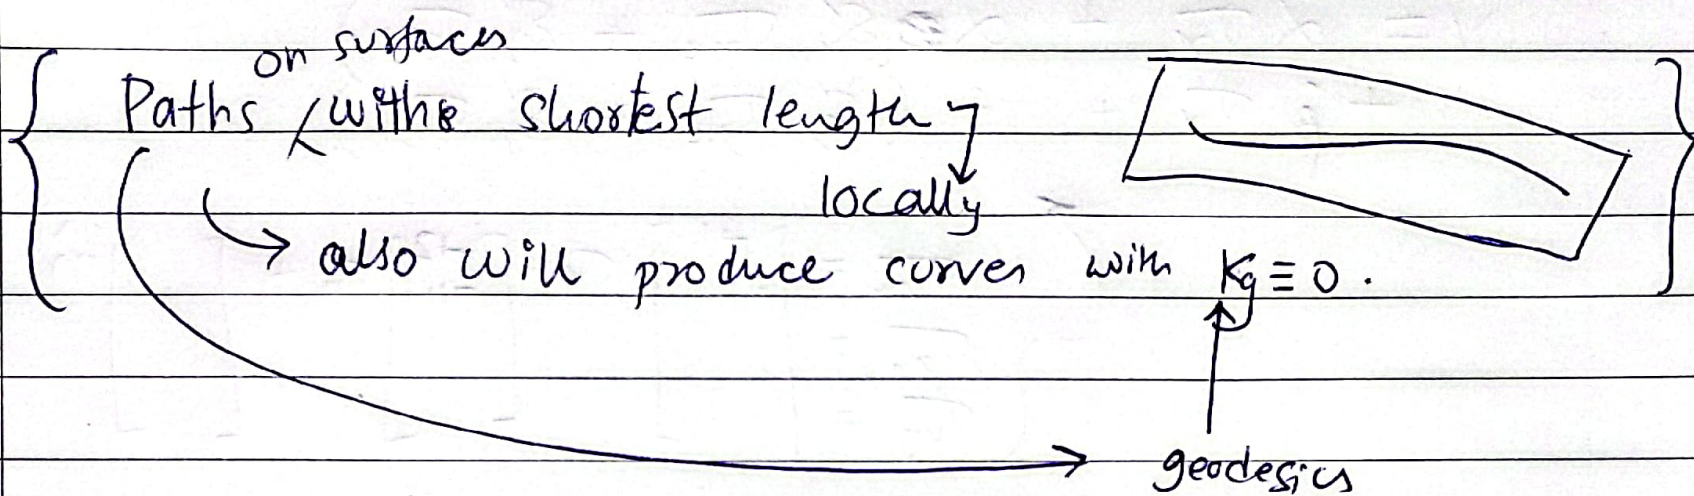 on surfaces
Paths with shortest length
locally
also will produce curves with Kg ≡ 0.
geodesics